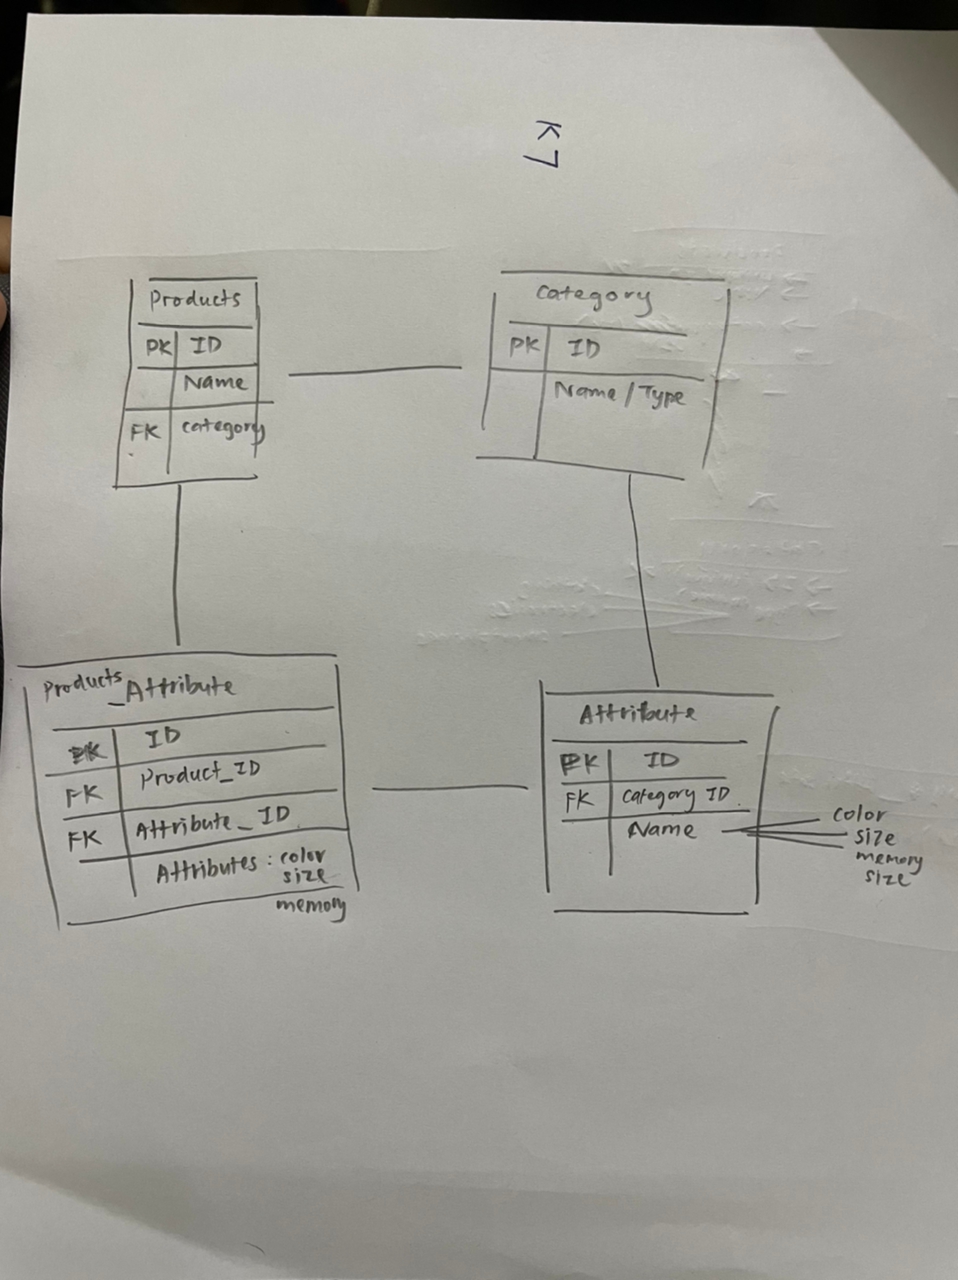 K7
Products
PK ID
Name
FK category
Category
PK ID
Name / Type
Products
_Attribute
PK ID
FK Product_ID
FK Attribute_ID
Attributes : color
size
memory
Attribute
PK ID
FK Category ID
Name
color
size
memory
size